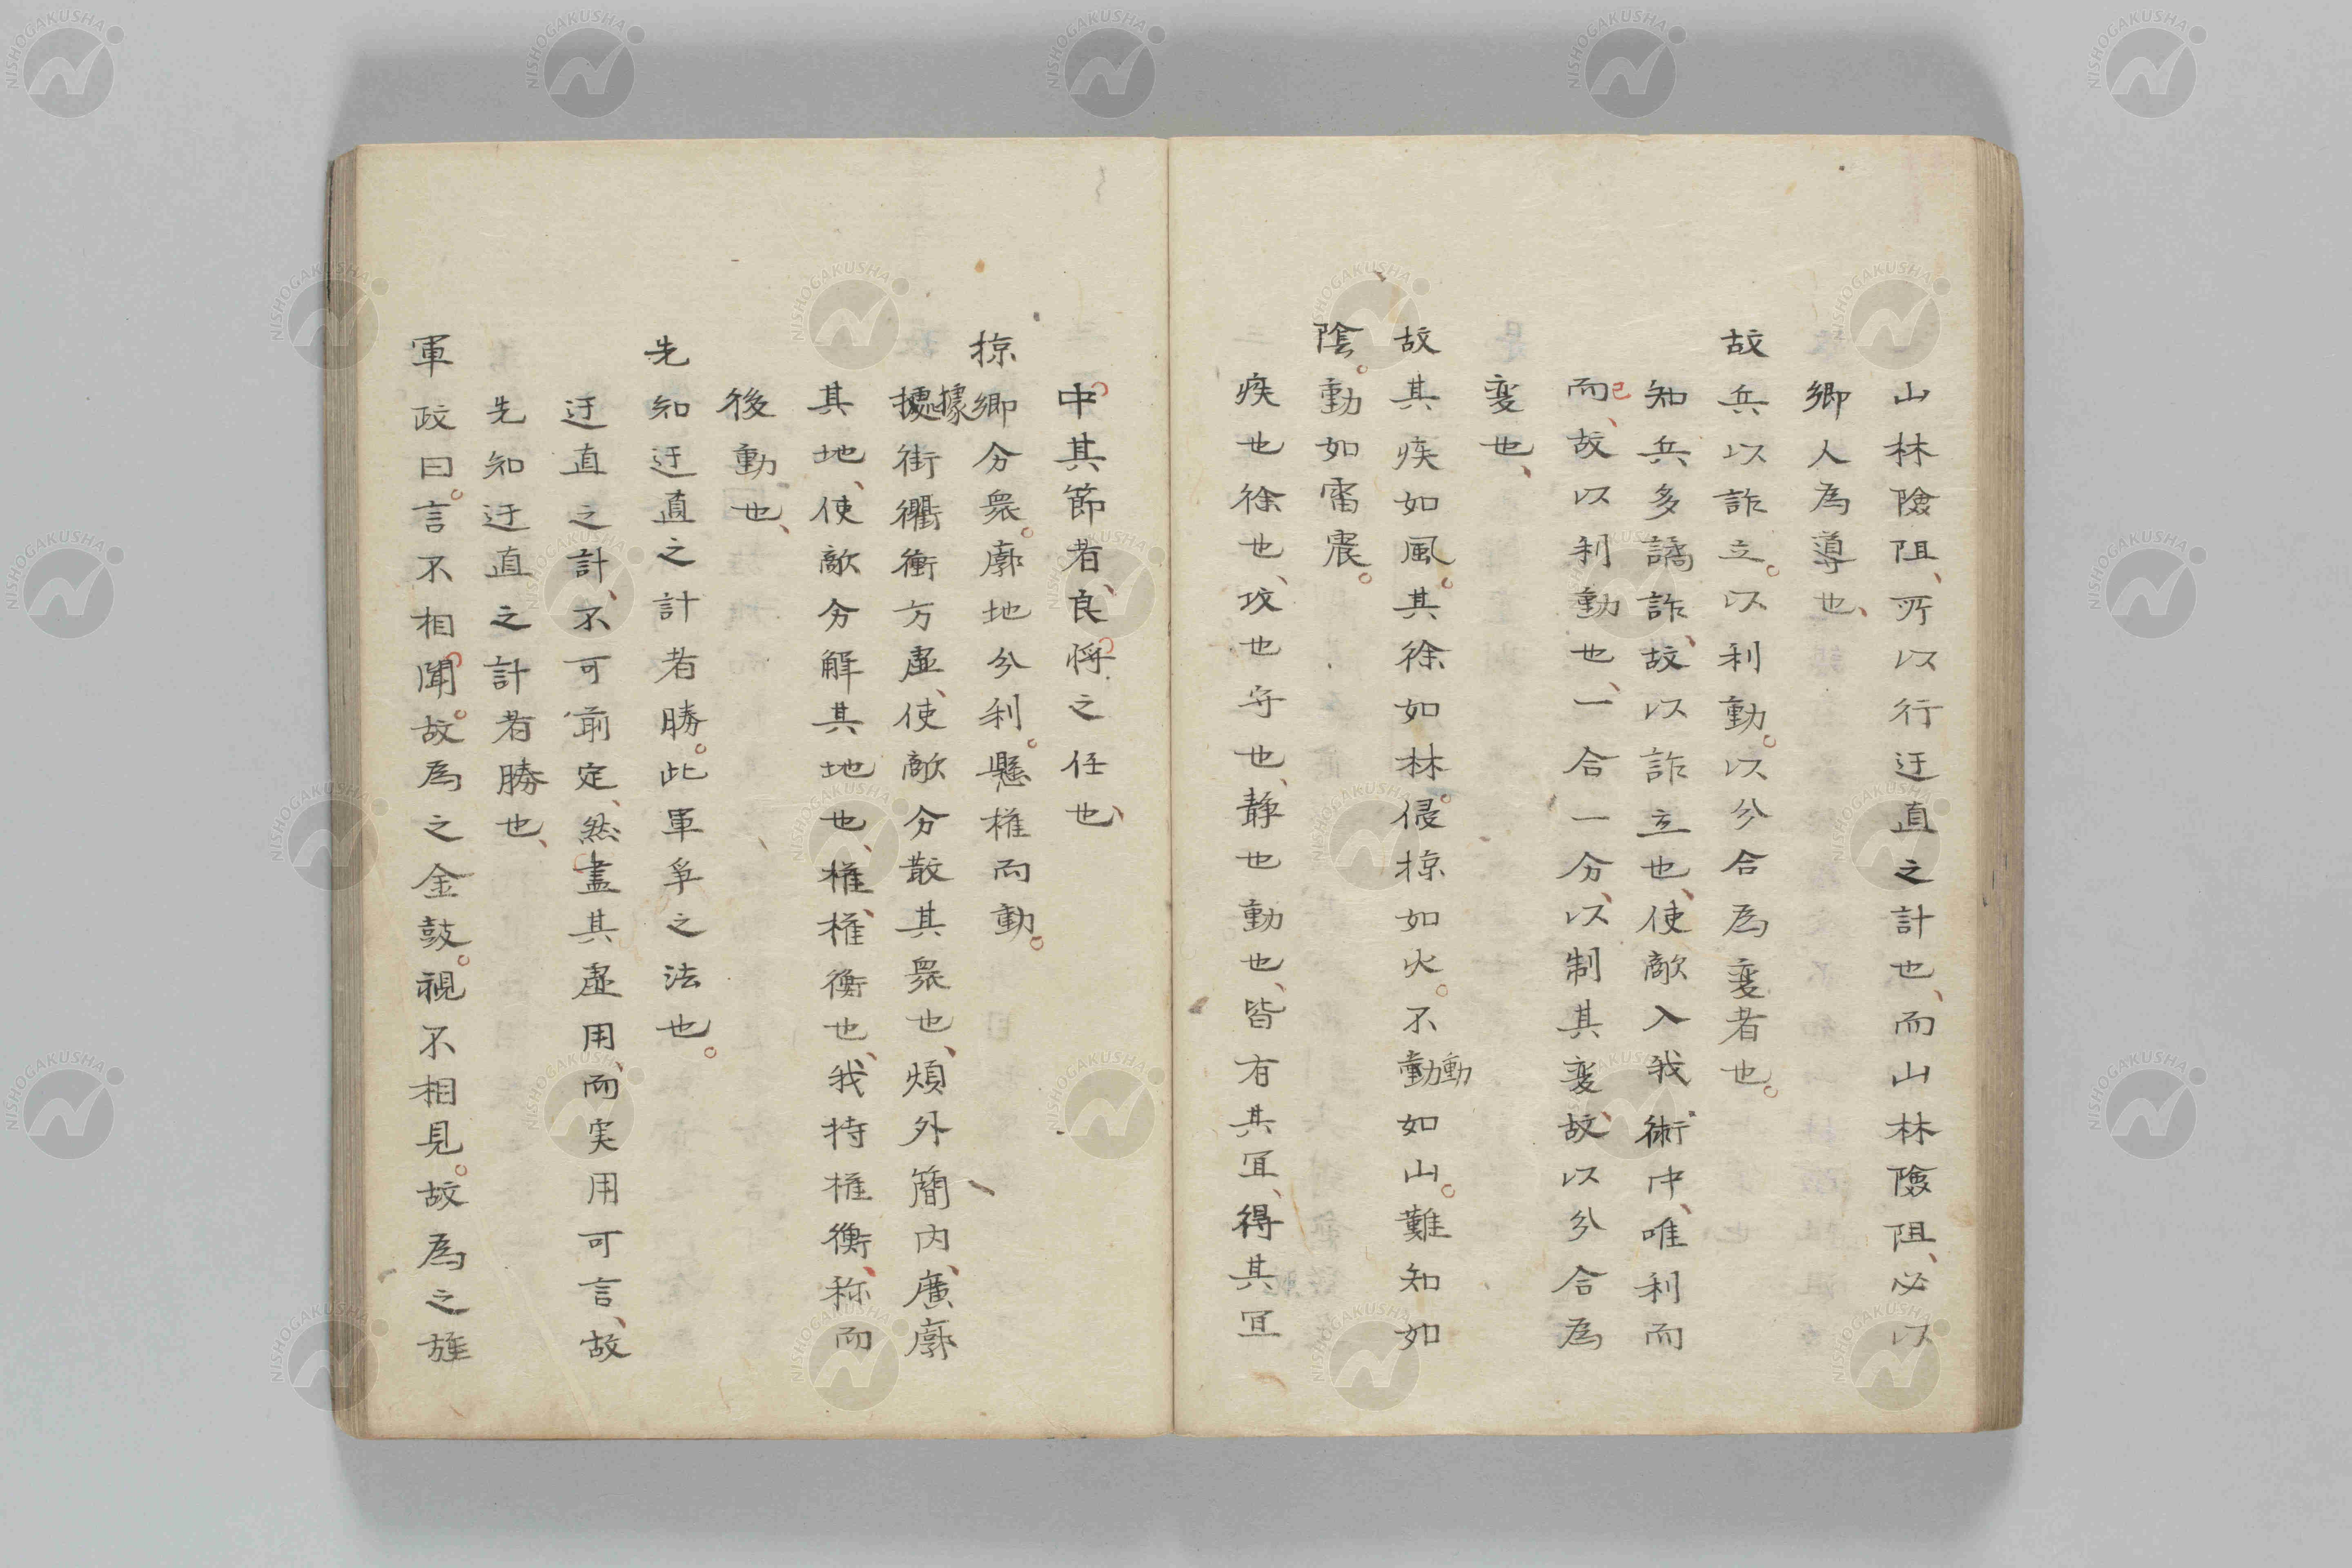 山林險阻、所以行迂直之計也、而山林險阻、必以
鄉人為導也、
故兵以詐立。以利動。以分合為変者也。
知兵多譎詐、故以詐立也、使敵入我術中、唯利而
而已、故以利動也、一合一分、以制其変、故以分合為
変也、
故其疾如風。其徐如林。侵掠如火。不動動如山。難知如
陰。動如雷震。
疾也徐也、攻也守也、静也動也、皆有其宜、得其宜
中其節者、良將之任也、
掠鄉分衆。廓地分利。懸権而動。
擾據街衢衝方虚、使敵分散其衆也、煩外簡内、廣廓
其地、使敵分解其地也、権、権衡也、我持権衡、称而
後動也、
先知迂直之計者勝。此軍爭之法也。
迂直之計、不可前定、然盡其虚用、而実用可言、故
先知迂直之計者勝也、
軍政曰。言不相聞。故為之金鼓。視不相見。故為之旌
NISHOGAKUSHA